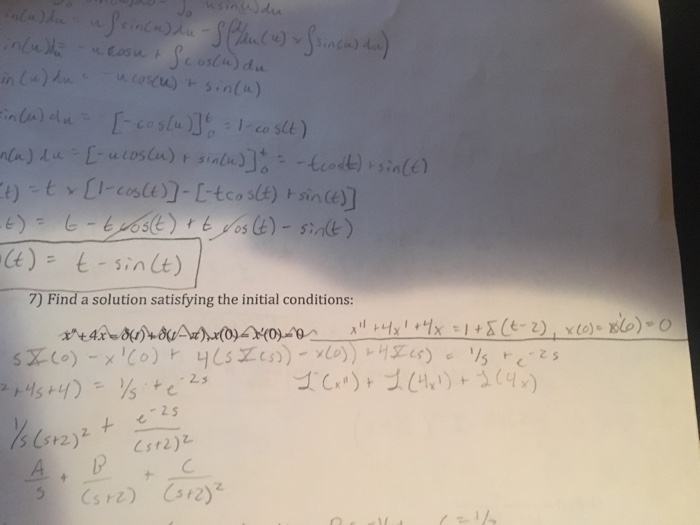 ∫₀ usin(u)du
in(u)du = u∫sin(u)du - ∫(d/du(u) × ∫sin(u)du)
in(u)du = -ucosu + ∫cos(u)du
in(u)du = -ucos(u) + sin(u)
in(u)du = [-cos(u)]₀ᵗ = 1-cos(t)
n(u)du = [-ucos(u) + sin(u)]₀ᵗ = -tcos(t) + sin(t)
(t) = t × [1-cos(t)] - [-tcos(t) + sin(t)]
t) = t - tcos(t) + tcos(t) - sin(t)
(t) = t - sin(t)
7) Find a solution satisfying the initial conditions:
x''+4x=δ(t)+δ(t-π), x(0)=x'(0)=0
x'' + 4x' + 4x = 1 + δ(t-2), x(0) = x'(0) = 0
sX(0) - x'(0) + 4(sX(s)) - x(0)) + 4X(s) = 1/s + e^-2s
² + 4s + 4) = 1/s + e^-2s
L(x'') + L(4x') + L(4x)
1/s(s+2)² + e^-2s/(s+2)²
A/s + B/(s+2) + C/(s+2)²